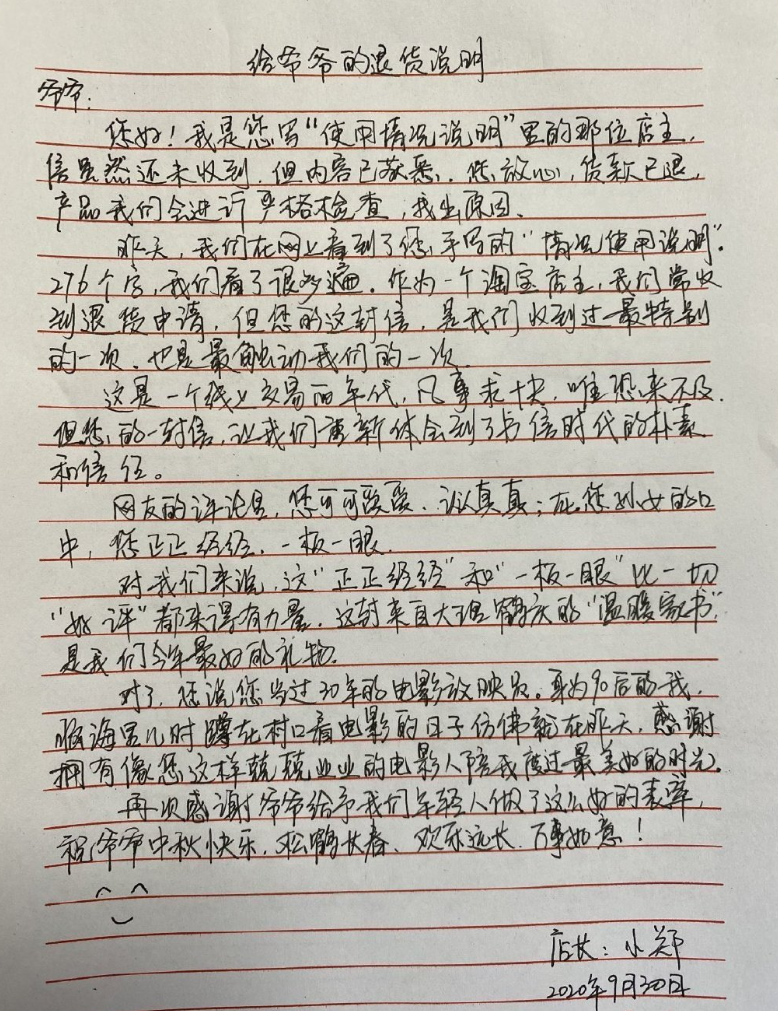 给爷爷的退货说明
爷爷：
您好！我是您写“使用情况说明”里的那位店主，
信虽然还未收到，但内容已获悉，您放心，货款已退，
产品我们会进行严格检查，找出原因。
昨天，我们在网上看到了您手写的“情况使用说明”。
276个字，我们看了很多遍。作为一个淘宝店主，我们常收
到退货申请，但您的这封信，是我们收到过最特别
的一次，也是最触动我们的一次
这是一个线上交易的年代，凡事求快，唯恐来不及，
但您的一封信，让我们重新体会到了书信时代的朴素
和信任。
网友的评论里，您可可爱爱、认认真真；在您孙女的口
中，您正正经经，一板一眼。
对我们来说，这“正正经经”和“一板一眼”比一切
“好评”都来得有力量，这封来自大理鹤庆的“温暖家书”，
是我们今年最好的礼物。
对了，您说您当过30年的电影放映员。身为90后的我，
脑海里儿时蹲在村口看电影的日子仿佛就在昨天，感谢
拥有像您这样兢兢业业的电影人陪我度过最美好的时光。
再次感谢爷爷给予我们年轻人做了这么好的表率，
祝爷爷中秋快乐，松鹤长春、欢乐远长、万事如意！
店长：小郑
2020年9月30日